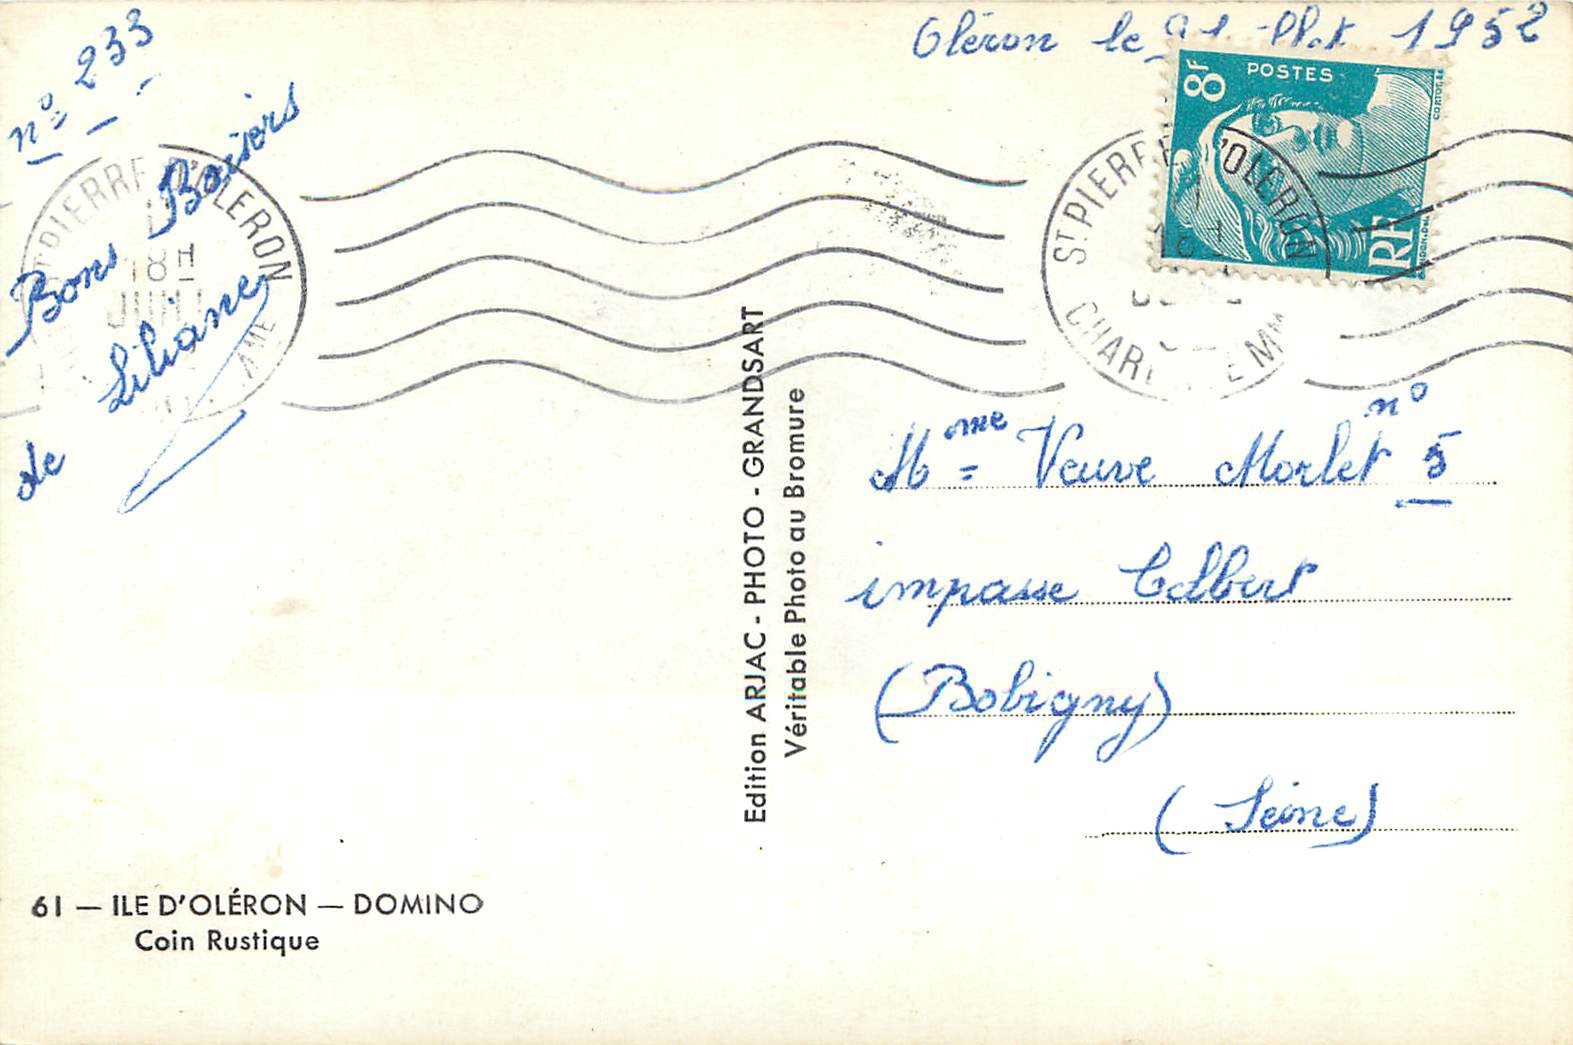 nº 233
Bons Baisers
de Liliane
Oléron le 1952
8F
POSTES
RF
ST PIERRE D'OLERON
18H
ST PIERRE D'OLERON
CHARENTE MME
Mme Veuve Morlet nº 5
impasse Colbert
(Bobigny)
(Seine)
Edition ARJAC - PHOTO - GRANDSART
Véritable Photo au Bromure
61 — ILE D'OLÉRON — DOMINO
Coin Rustique